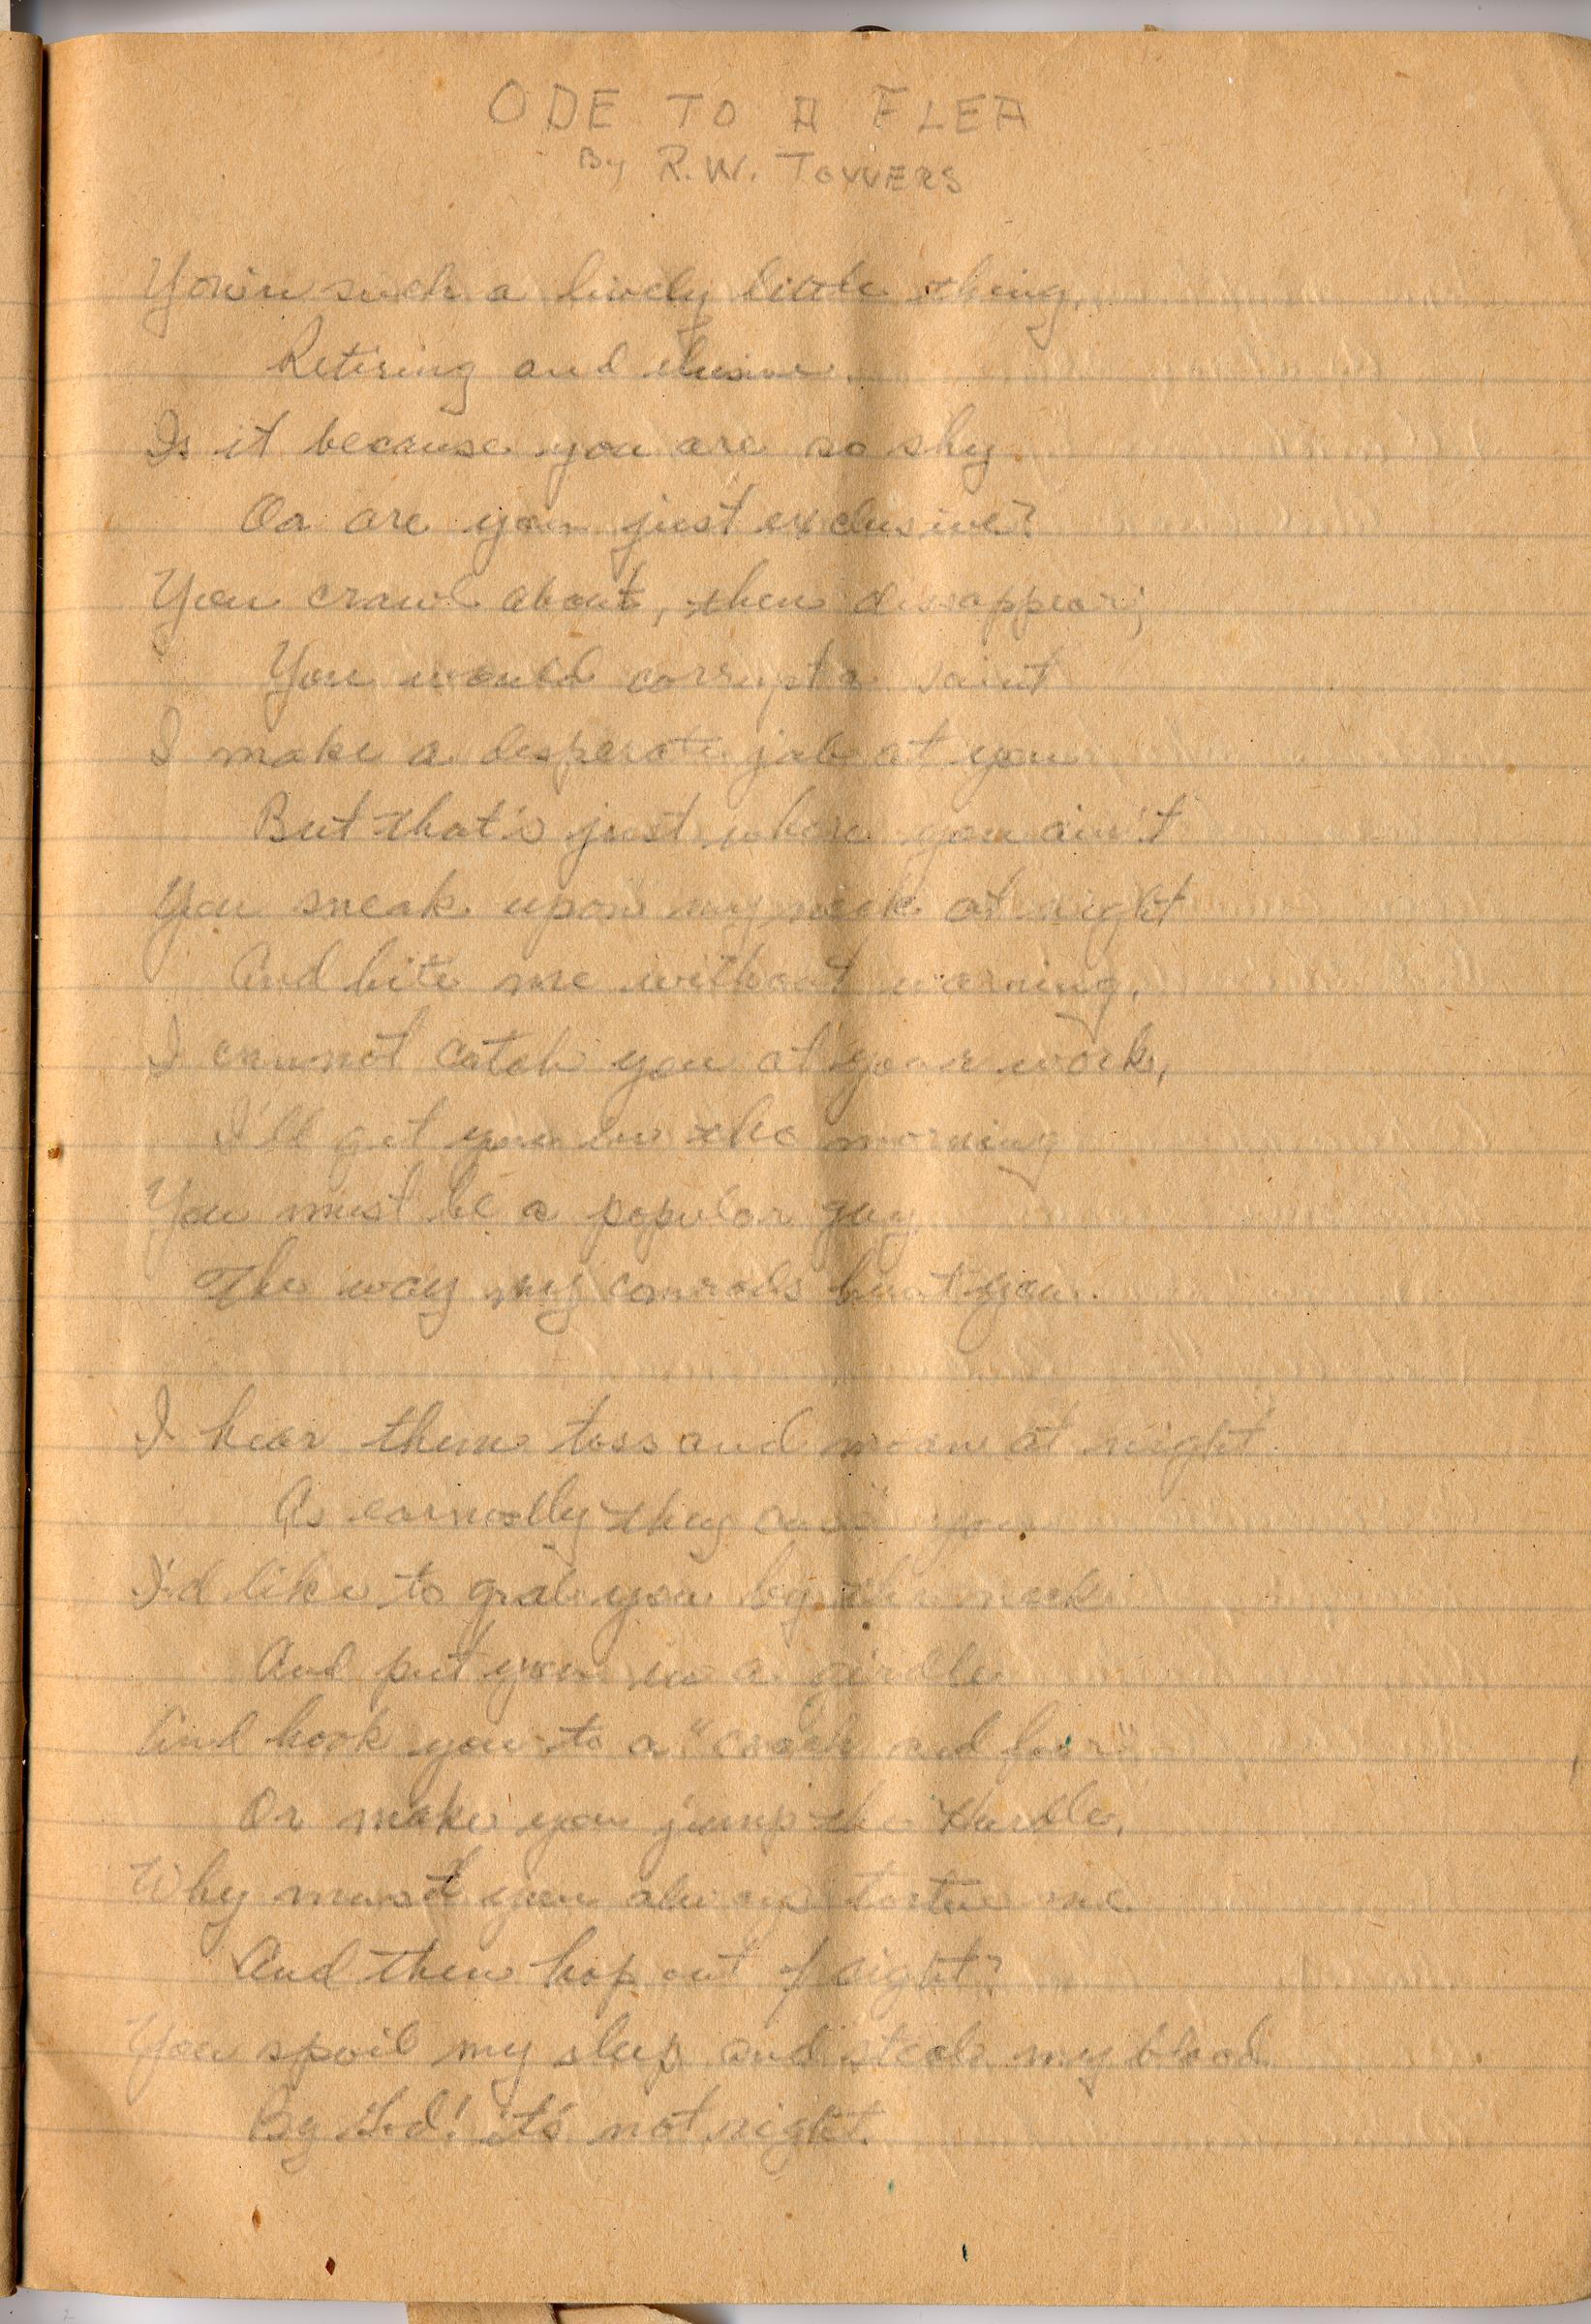 ODE TO A FLEA
By R.W. TOWERS
You're such a lively little thing,
Retiring and elusive.
Is it because you are so shy
Or are you just exclusive?
You crawl about, then dissappear;
You would corrupt a saint
I make a desperate jab at you
But that's just where you ain't
You sneak upon my neck at night
And bite me without warning,
I cannot catch you at your work,
I'll get you in the morning
You must be a popular guy
The way my comrads hunt you.
I hear them toss and moan at night
As earnestly they you
I'd like to grab you by the neck
And put you in a girdle
And hook you to a "coach and four"
Or make you jump the hurdle.
Why must you always torture me
And then hop out of sight?
You spoil my sleep and steal my blood
By God! it's not right.